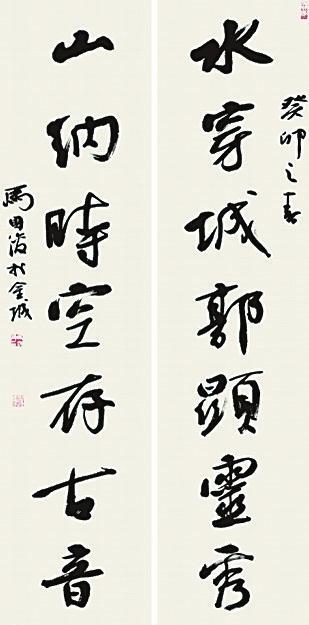 水穿城郭顕靈秀
癸卯之春
山纳時空存古音
馬田
於金城